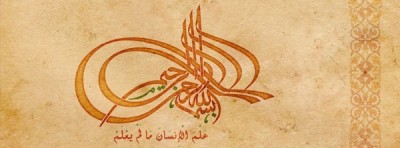 بسم الله الرحمن الرحيم
علم الإنسان ما لم يعلم